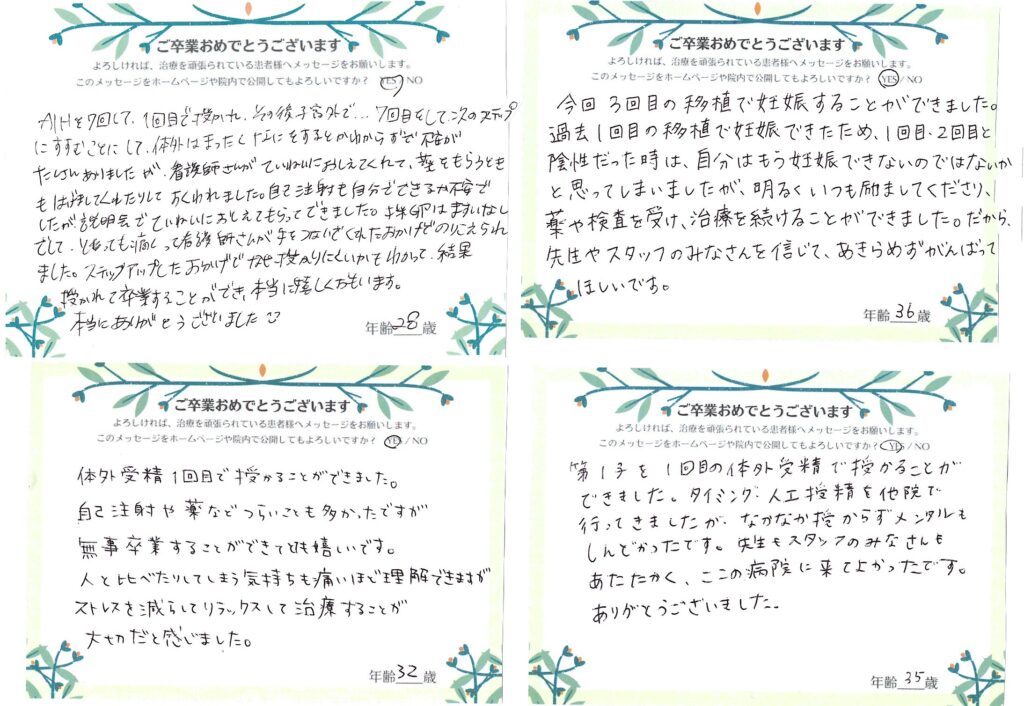 ご卒業おめでとうございます
よろしければ、治療を頑張られている患者様へメッセージをお願いします。
このメッセージをホームページや院内で公開してもよろしいですか? YES/NO
AIHを7回して、1回目で授かれ、その後子宮外で… 7回目をして次のステップ
にすすむことにして、体外はまったくなにをするとかわからずで不安が
たくさんありましたが、看護師さんがていねいにおしえてくれて、薬をもらうとも
もはげましてくれたりして すくわれました。自己注射も自分でできるか不安で
したが説明会でていねいにおしえてもらってできました。採卵はますいなし
でして、とっても痛くって看護師さんが手をつないでくれたおかげでのりこえられ
ました。ステップアップしたおかげで 授かりにくいかもわかって、結果
授かれて卒業することができ、本当に嬉しくおもいます。
本当にありがとうございました
年齢 28 歳
ご卒業おめでとうございます
よろしければ、治療を頑張られている患者様へメッセージをお願いします。
このメッセージをホームページや院内で公開してもよろしいですか? YES/NO
今回3回目の移植で妊娠することができました。
過去1回目の移植で妊娠できたため、1回目・2回目と
陰性だった時は、自分はもう妊娠できないのではないか
と思ってしまいましたが、明るくいつも励ましてくださり、
薬や検査を受け、治療を続けることができました。だから、
先生やスタッフのみなさんを信じて、あきらめずがんばって
ほしいです。
年齢 36 歳
ご卒業おめでとうございます
よろしければ、治療を頑張られている患者様へメッセージをお願いします。
このメッセージをホームページや院内で公開してもよろしいですか? YES/NO
体外受精1回目で授かることができました。
自己注射や薬などつらいことも多かったですが
無事卒業することができてとても嬉しいです。
人と比べたりしてしまう気持ちも痛いほど理解できますが
ストレスを減らしてリラックスして治療することが
大切だと感じました。
年齢 32 歳
ご卒業おめでとうございます
よろしければ、治療を頑張られている患者様へメッセージをお願いします。
このメッセージをホームページや院内で公開してもよろしいですか? YES/NO
第1子を1回目の体外受精で授かることが
できました。タイミング・人工授精を他院で
行ってきましたが、なかなか授からずメンタルも
しんどかったです。先生もスタッフのみなさんも
あたたかく、ここの病院に来てよかったです。
ありがとうございました。
年齢 35 歳